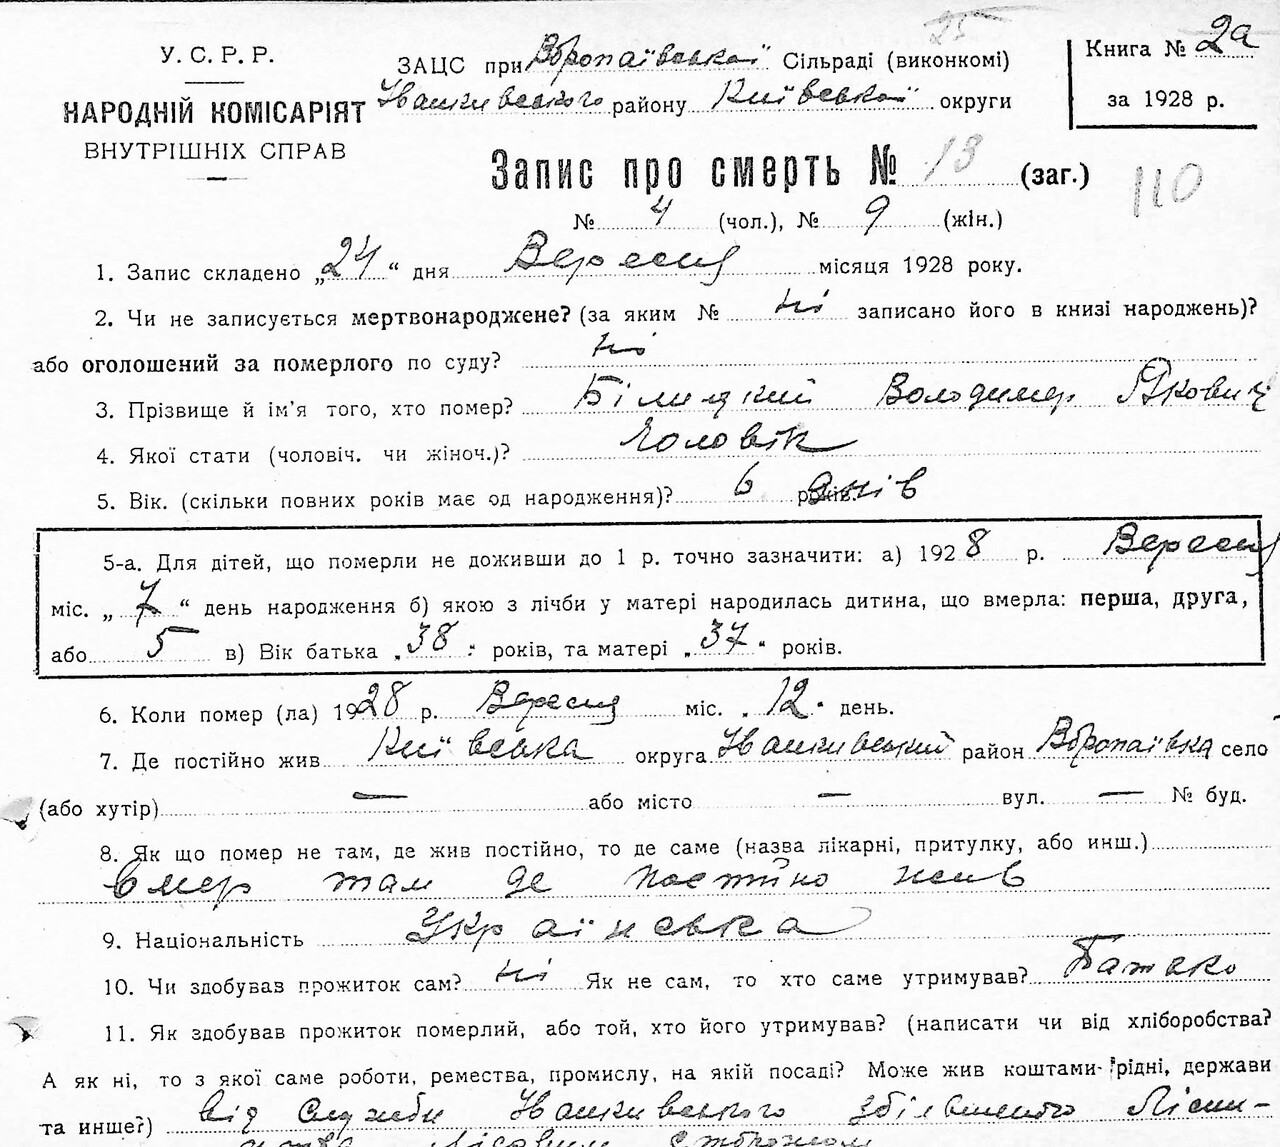 25
У. С. Р. Р.
НАРОДНІЙ КОМІСАРІЯТ
ВНУТРІШНІХ СПРАВ
ЗАЦС при Воропаївської Сільраді (виконкомі)
Іванківського району Київської округи
Книга № 2а
за 1928 р.
Запис про смерть № 13 (заг.)
110
№ 4 (чол.), № 9 (жін.)
1. Запис складено „24“ дня Вересня місяця 1928 року.
2. Чи не записується мертвонароджене? (за яким № ні записано його в книзі народжень)?
або оголошений за померлого по суду? ні
3. Прізвище й ім'я того, хто помер? Білицкий Володимер Якович
4. Якої стати (чоловіч. чи жіноч.)? Чоловік
5. Вік. (скільки повних років має од народження)? 6 років. днів
5-а. Для дітей, що померли не доживши до 1 р. точно зазначити: а) 1928 р. Вересня
міс. „7“ день народження б) якою з лічби у матері народилась дитина, що вмерла: перша, друга,
або 5 в) Вік батька „38“ років, та матері „37“ років.
6. Коли помер (ла) 1928 р. Вересня міс. „12“ день.
7. Де постійно жив Київська округа Іванкивський район Воропаївка село
(або хутір) — або місто — вул. — № буд.
8. Як що помер не там, де жив постійно, то де саме (назва лікарні, притулку, або инш.)
вмер там де постійно жив
9. Національність Українська
10. Чи здобував прожиток сам? ні Як не сам, то хто саме утримував? Батько
11. Як здобував прожиток померлий, або той, хто його утримував? (написати чи від хліборобства?
А як ні, то з якої саме роботи, ремества, промислу, на якій посаді? Може жив коштами рідні, держави
та инше?) від служби Іванкивського збільшеного Лісни-
цтва лісовим сторожом